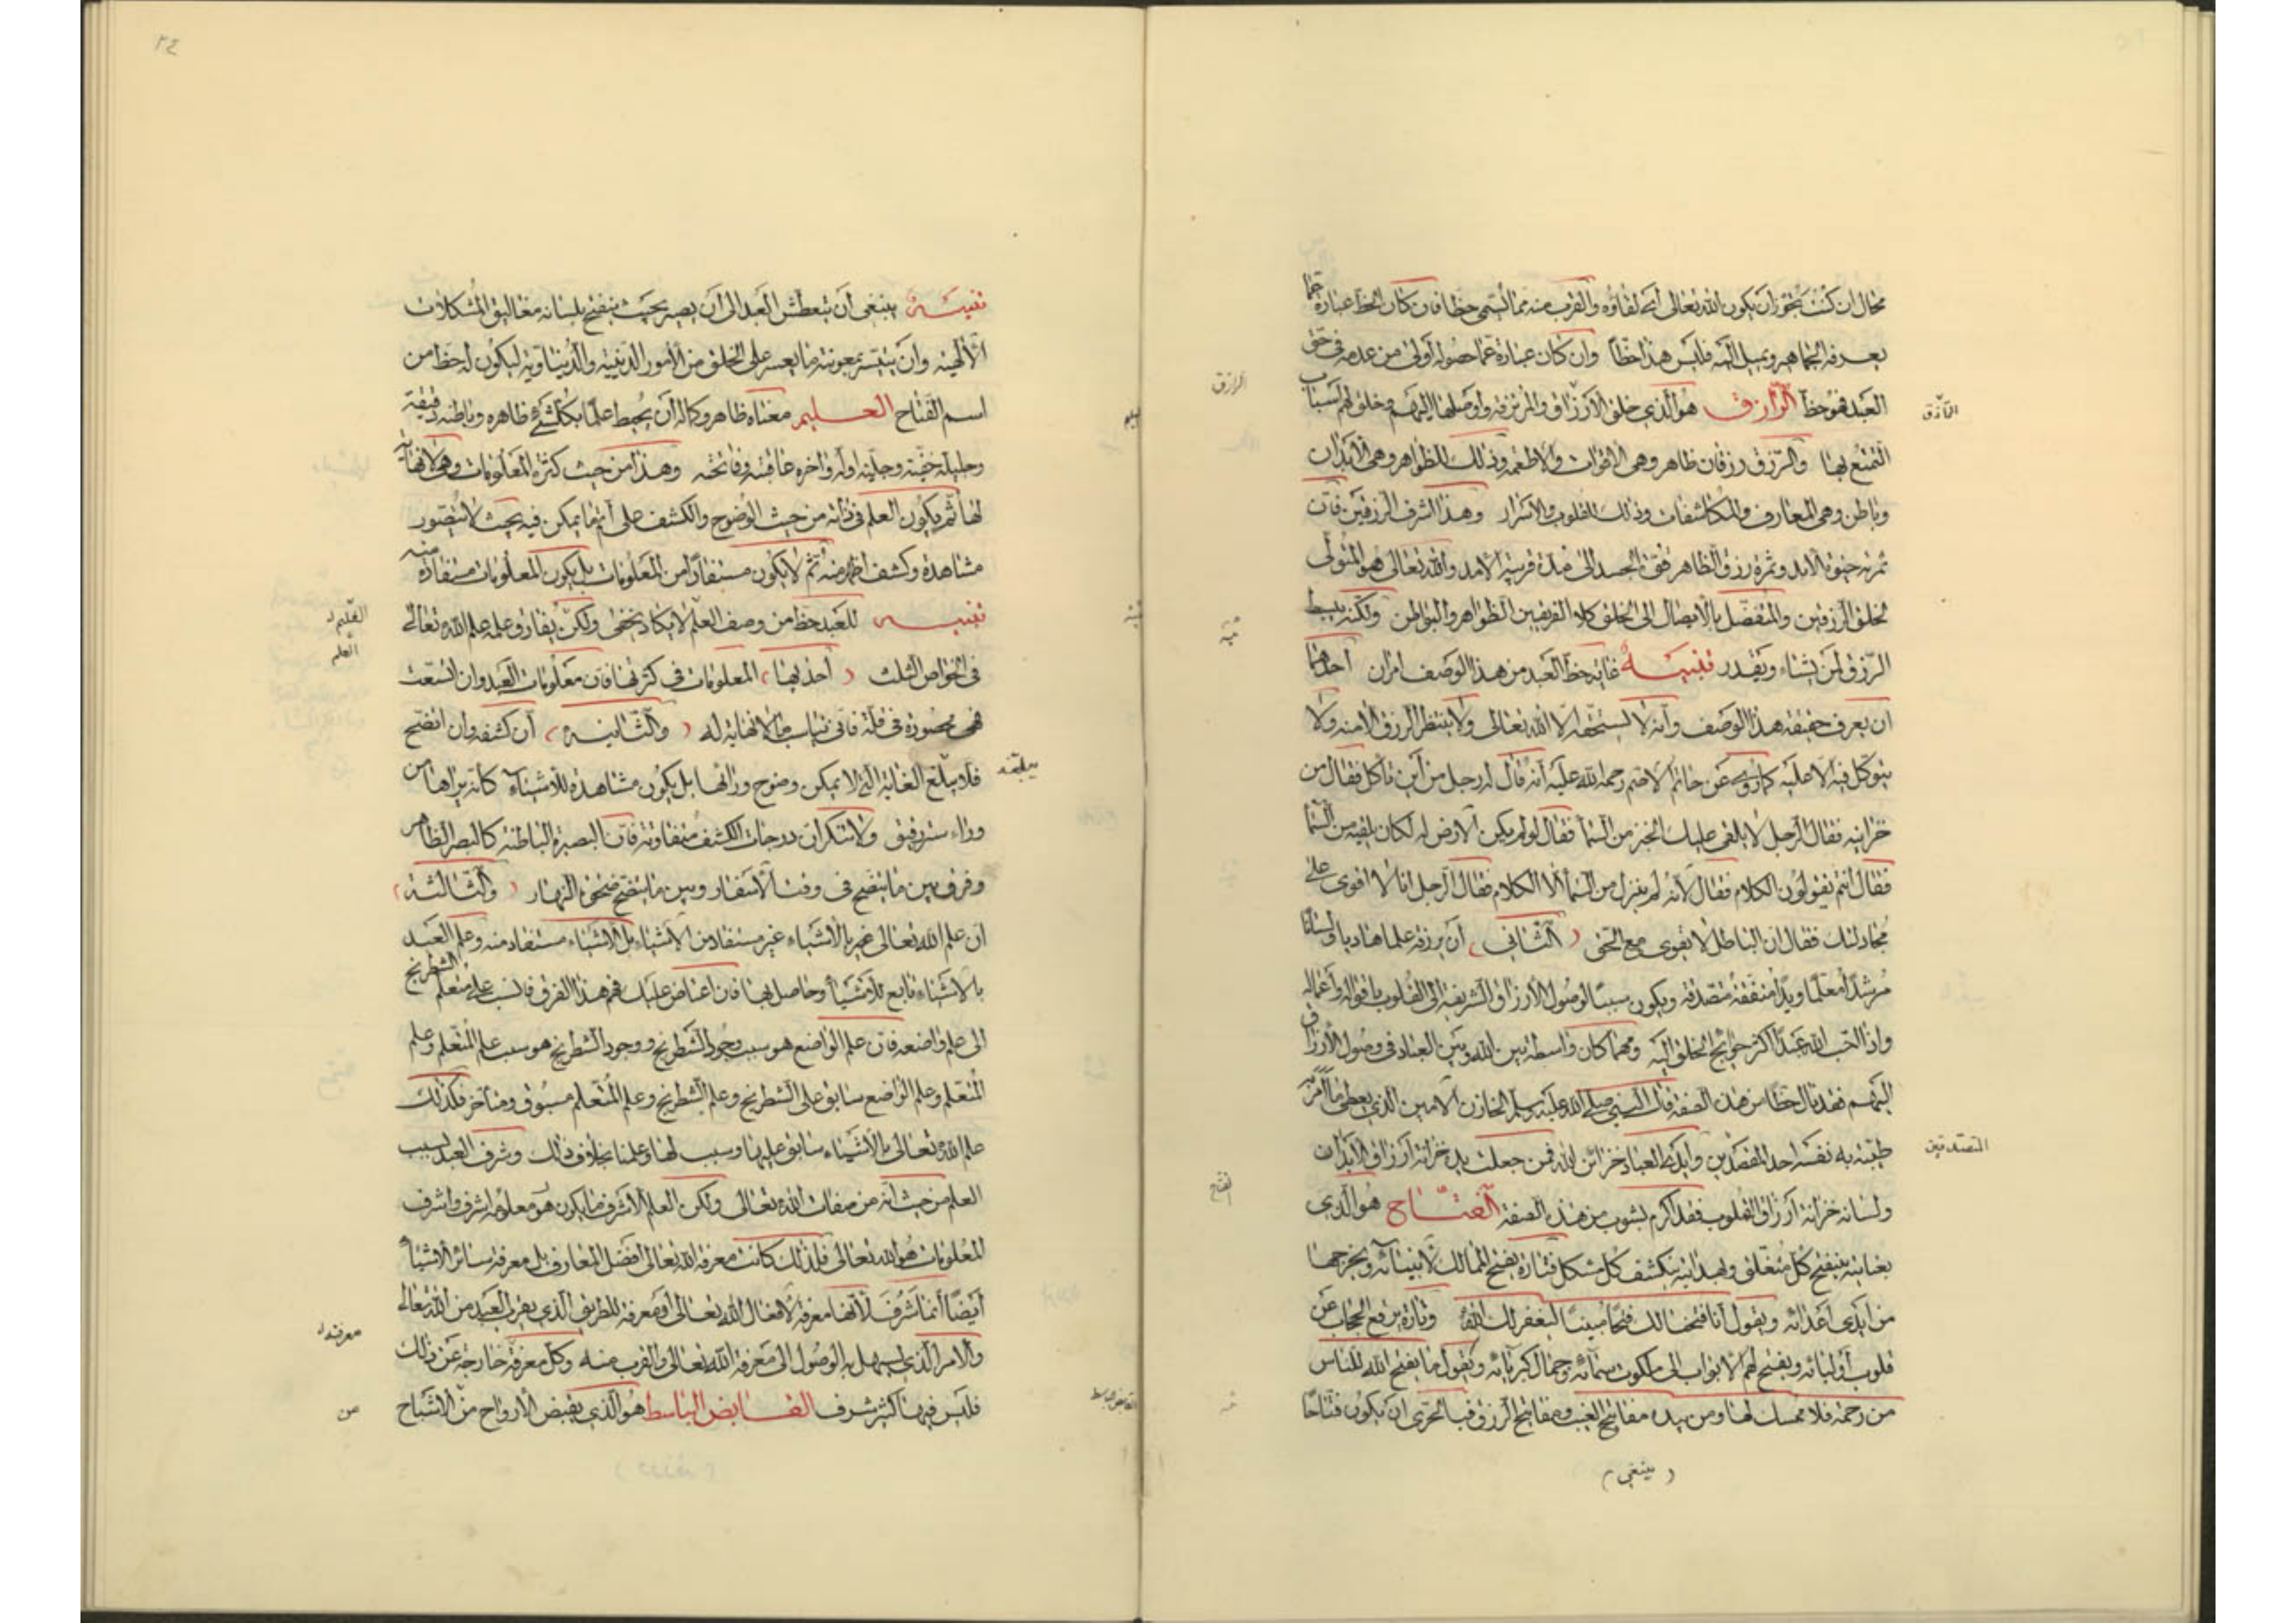 محال ان كنت تجوز ان يكون الله تعالى أى لقاؤه والقرب منه مما يسمى حظا فان كان الحظ عبارة عما
يعرفه الجماهير ويميل اليه فليس هذا حظا وان كان عبارة عما حصوله أولى من عدمه فى حق
العبد فهو حظ الرّزاق هو الذى خلق الارزاق والمرتزقة واوصلها اليهم وخلق لهم اسباب
التمتع بها والرّزق رزقان ظاهر وهى الاقوات والاطعمة وذلك للظواهر وهى الابدان
وباطن وهى المعارف والمكاشفات وذلك للقلوب والاسرار وهذا اشرف الرزقين فان
ثمرته حيوة الابد وثمرة رزق الظاهر قوّة الجسد الى مدة قريبة الامد والله تعالى هو المتولى
لخلق الرزقين والمتفضل بالايصال الى الخلق كلا الفريقين الظواهر والبواطن ولكنه يبسط
الرّزق لمن يشاء ويقدر تنبيه غاية حظ العبد من هذا الوصف امران أحدهما
ان يعرف حقيقة هذا الوصف وأنه لا يستحقه الّا الله تعالى ولا ينتظر الرزق الا منه ولا
يتوكل فيه الا عليه كما روى عن حاتم الاصم رحمة الله عليه أنه قال له رجل من أين تأكل فقال من
خزانته فقال الرجل لا يلقى عليك الخبز من السماء فقال لو لم يكن الارض له لكان يلقيه من السماء
فقال انتم تقولون الكلام فقال لأنه لم ينزل من السماء الّا الكلام فقال الرجل انا لا اقوى على
مجادلتك فقال ان الباطل لا يقوى مع الحق ( الثّانى ) أن يرزقه علما هاديا ولسانا
مرشدا معلّما ويدا منفقة متصدّقة ويكون سببا لوصول الارزاق الشريفة الى القلوب باقواله واعماله
واذا احب الله عبدا اكثر حوائج الخلق اليه ومهما كان واسطة بين الله وبين العباد فى وصول الأرزاق
اليهم فقد نال حظا من هذه الصفة قال النبى صلى الله عليه وسلم الخازن الامين الذى يعطى ما أمر به
طيّبة به نفسه احد المتصدقين وايدى العباد خزائن الله فمن جعلت يده خزانة ارزاق الابدان
ولسانه خزانة أرزاق القلوب فقد اكرم بشوب من هذه الصفة الفتّاح هو الّذى
بعنايته ينفتح كل منغلق وبهدايته ينكشف كل مشكل فتارة يفتح الممالك لانبيائه ويخرجها
من ايدى اعدائه ويقول انا فتحنا لك فتحا مبينا ليغفر لك الله وتارة يرفع الحجاب عن
قلوب أوليائه ويفتح لهم الابواب الى ملكوت سمائه وجمال كبريائه ويقول ما يفتح الله للناس
من رحمة فلا ممسك لها ومن بيده مفاتيح الغيب ومفاتيح الرزق فبالحرى ان يكون فتّاحا
( ينبغى )
الرّزاق
المتصدقين
الرازق
الفتاح
٢٤
تنبيه ينبغى أن يتعطش العبد الى أن يصير بحيث ينفتح بلسانه مغاليق المشكلات
الالهية وان يتيسر بمعونته ما يعسر على الخلق من الأمور الدينية والدّنياوية ليكون له حظ من
اسم الفتاح العليم معناه ظاهر وكماله أن يحيط علما بكل شئ ظاهره وباطنه دقيقة
وجليلة خفيّة وجليّة اوله واخره عاقبته وفاتحته وهذا من حيث كثرة المعلومات وهى لا نهاية
لها ثم يكون العلم فى ذاته من حيث الوضوح والكشف على أتم ما يمكن فيه بحيث لا يتصور
مشاهدة وكشف اظهر منه ثم لا يكون مستفادا من المعلومات بل يكون المعلومات مستفادة منه
تنبيه للعبد حظ من وصف العلم لا يكاد يخفى ولكن يفارق علمه علم الله تعالى
فى الخواص الثلث ( أحديها ) المعلومات فى كثرتها فان معلومات العبد وان اتسعت
فهى محصورة فى قلة فانى تناسب ما لا نهاية له ( والثّانية ) أن كشفه وان اتضح
فلا يبلغ الغاية التى لا يمكن وضوح ورائها بل يكون مشاهدة للاشياء كأنه يراها من
وراء ستر رقيق ولا تنكرن درجات الكشف متفاوتة فان البصيرة الباطنة كالبصر الظاهر
وفرق بين ما يتضح فى وقت الاسفار وبين ما يتضح ضحوة النهار ( والثّالثة )
ان علم الله تعالى خبر بالاشياء غير مستفاد من الاشياء بل الاشياء مستفاد منه وعلم العبد
بالاشياء تابع للاشياء وحاصل بها فان اعتاص عليك فهم هذا الفرق فانسب على متعلم الشطرنج
الى علم واضعه فان علم الواضع هو سبب وجود الشطرنج ووجود الشطرنج هو سبب علم المتعلم وعلم
المتعلم وعلم الواضع سابق على الشطرنج وعلم الشطرنج وعلم المتعلم مسبوق ومتأخر فكذلك
علم الله تعالى بالأشياء سابق عليها وسبب لها وعلمنا بخلاف ذلك وشرف العبد بسبب
العلم من حيث انه من صفات الله تعالى ولكن العلم الاشرف ما يكون هو معلومه اشرف واشرف
المعلومات هو الله تعالى فلذلك كانت معرفة الله تعالى افضل المعارف بل معرفة سائر الاشياء
أيضا انما تشرف لأنها معرفة لافعال الله تعالى أو معرفة للطريق الذى يقرب العبد من الله تعالى
والامر الذى يسهل به الوصول الى معرفة الله تعالى والقرب منه وكل معرفة خارجة عن ذلك
فليس فيها كثير شرف القابض الباسط هو الذى يقبض الأرواح من الاشباح
العلم
معرفته
من